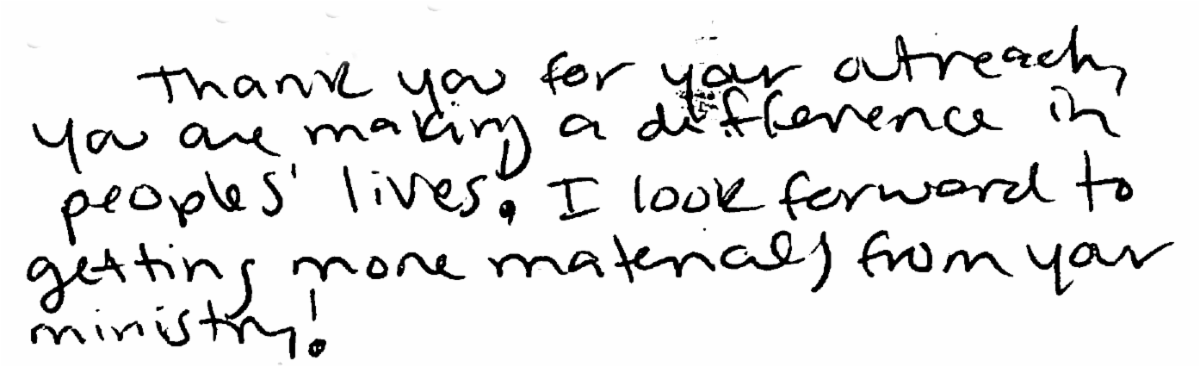 Thank you for your outreach,
you are making a difference in
peoples' lives. I look forward to
getting more materials from your
ministry!